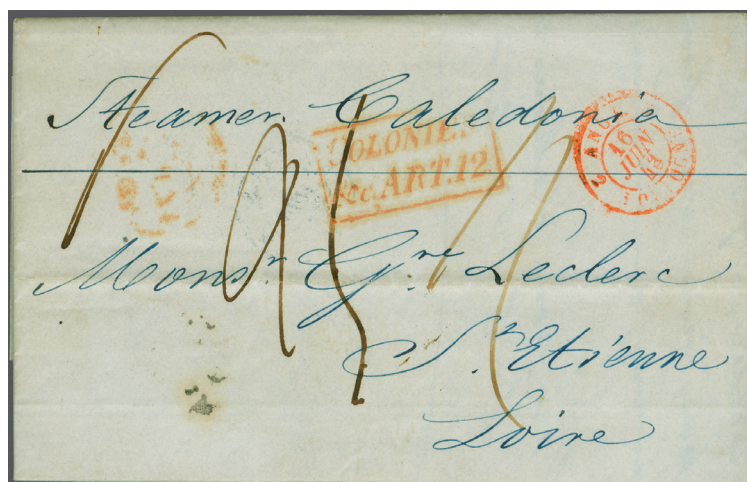 Steamer Caledonia
COLONIES
&c. ART. 12
16
JUIN
44
Monsr. Gre Leclerc
St. Etienne
Loire